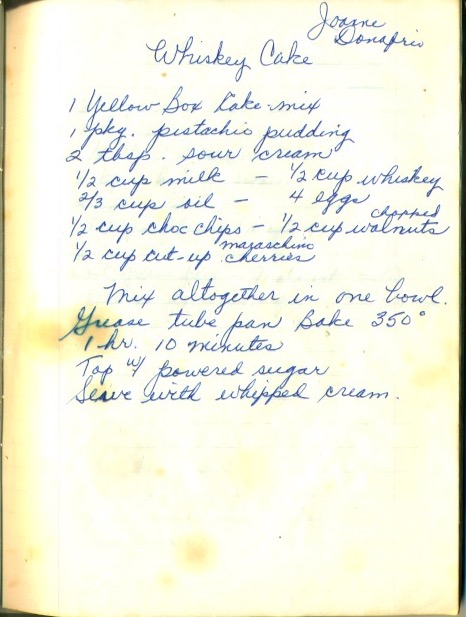 Joanne
Donafrio
Whiskey Cake
1 Yellow Box Cake-mix
1 pkg. pistachio pudding
2 tbsp. sour cream
1/2 cup milk - 1/2 cup whiskey
2/3 cup oil - 4 eggs
1/2 cup choc chips - 1/2 cup chopped walnuts
1/2 cup cut-up maraschino cherries
Mix altogether in one bowl.
Grease tube pan Bake 350°
1 hr. 10 minutes
Top w/ powered sugar
Serve with whipped cream.